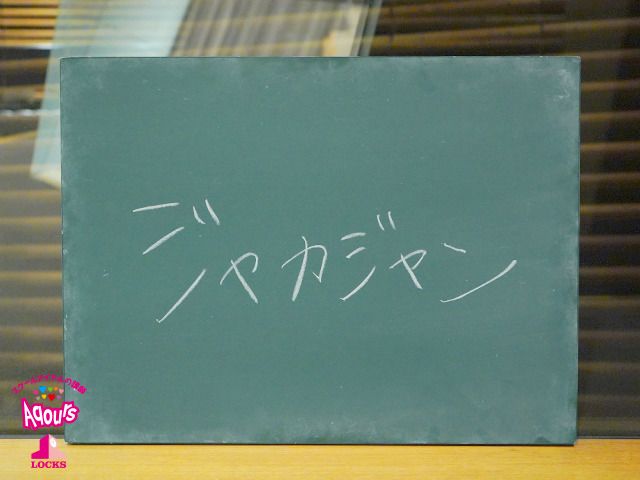 ジャカジャン
スクールアイドルの講師
Aqours
LOCKS